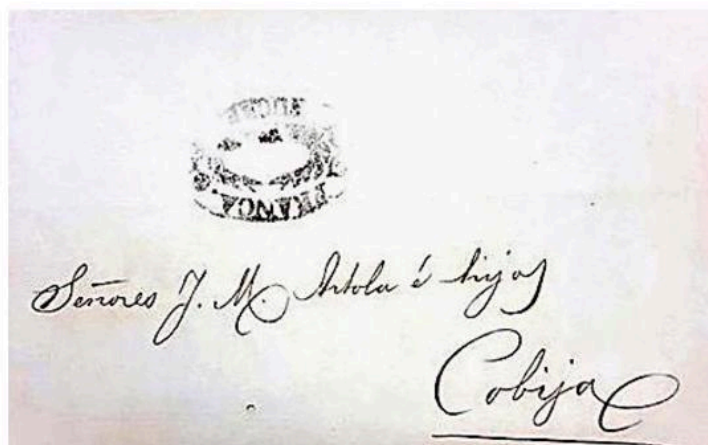 SUCRE
FRANCA.
Señores J. M. Artola é hijos
Cobija